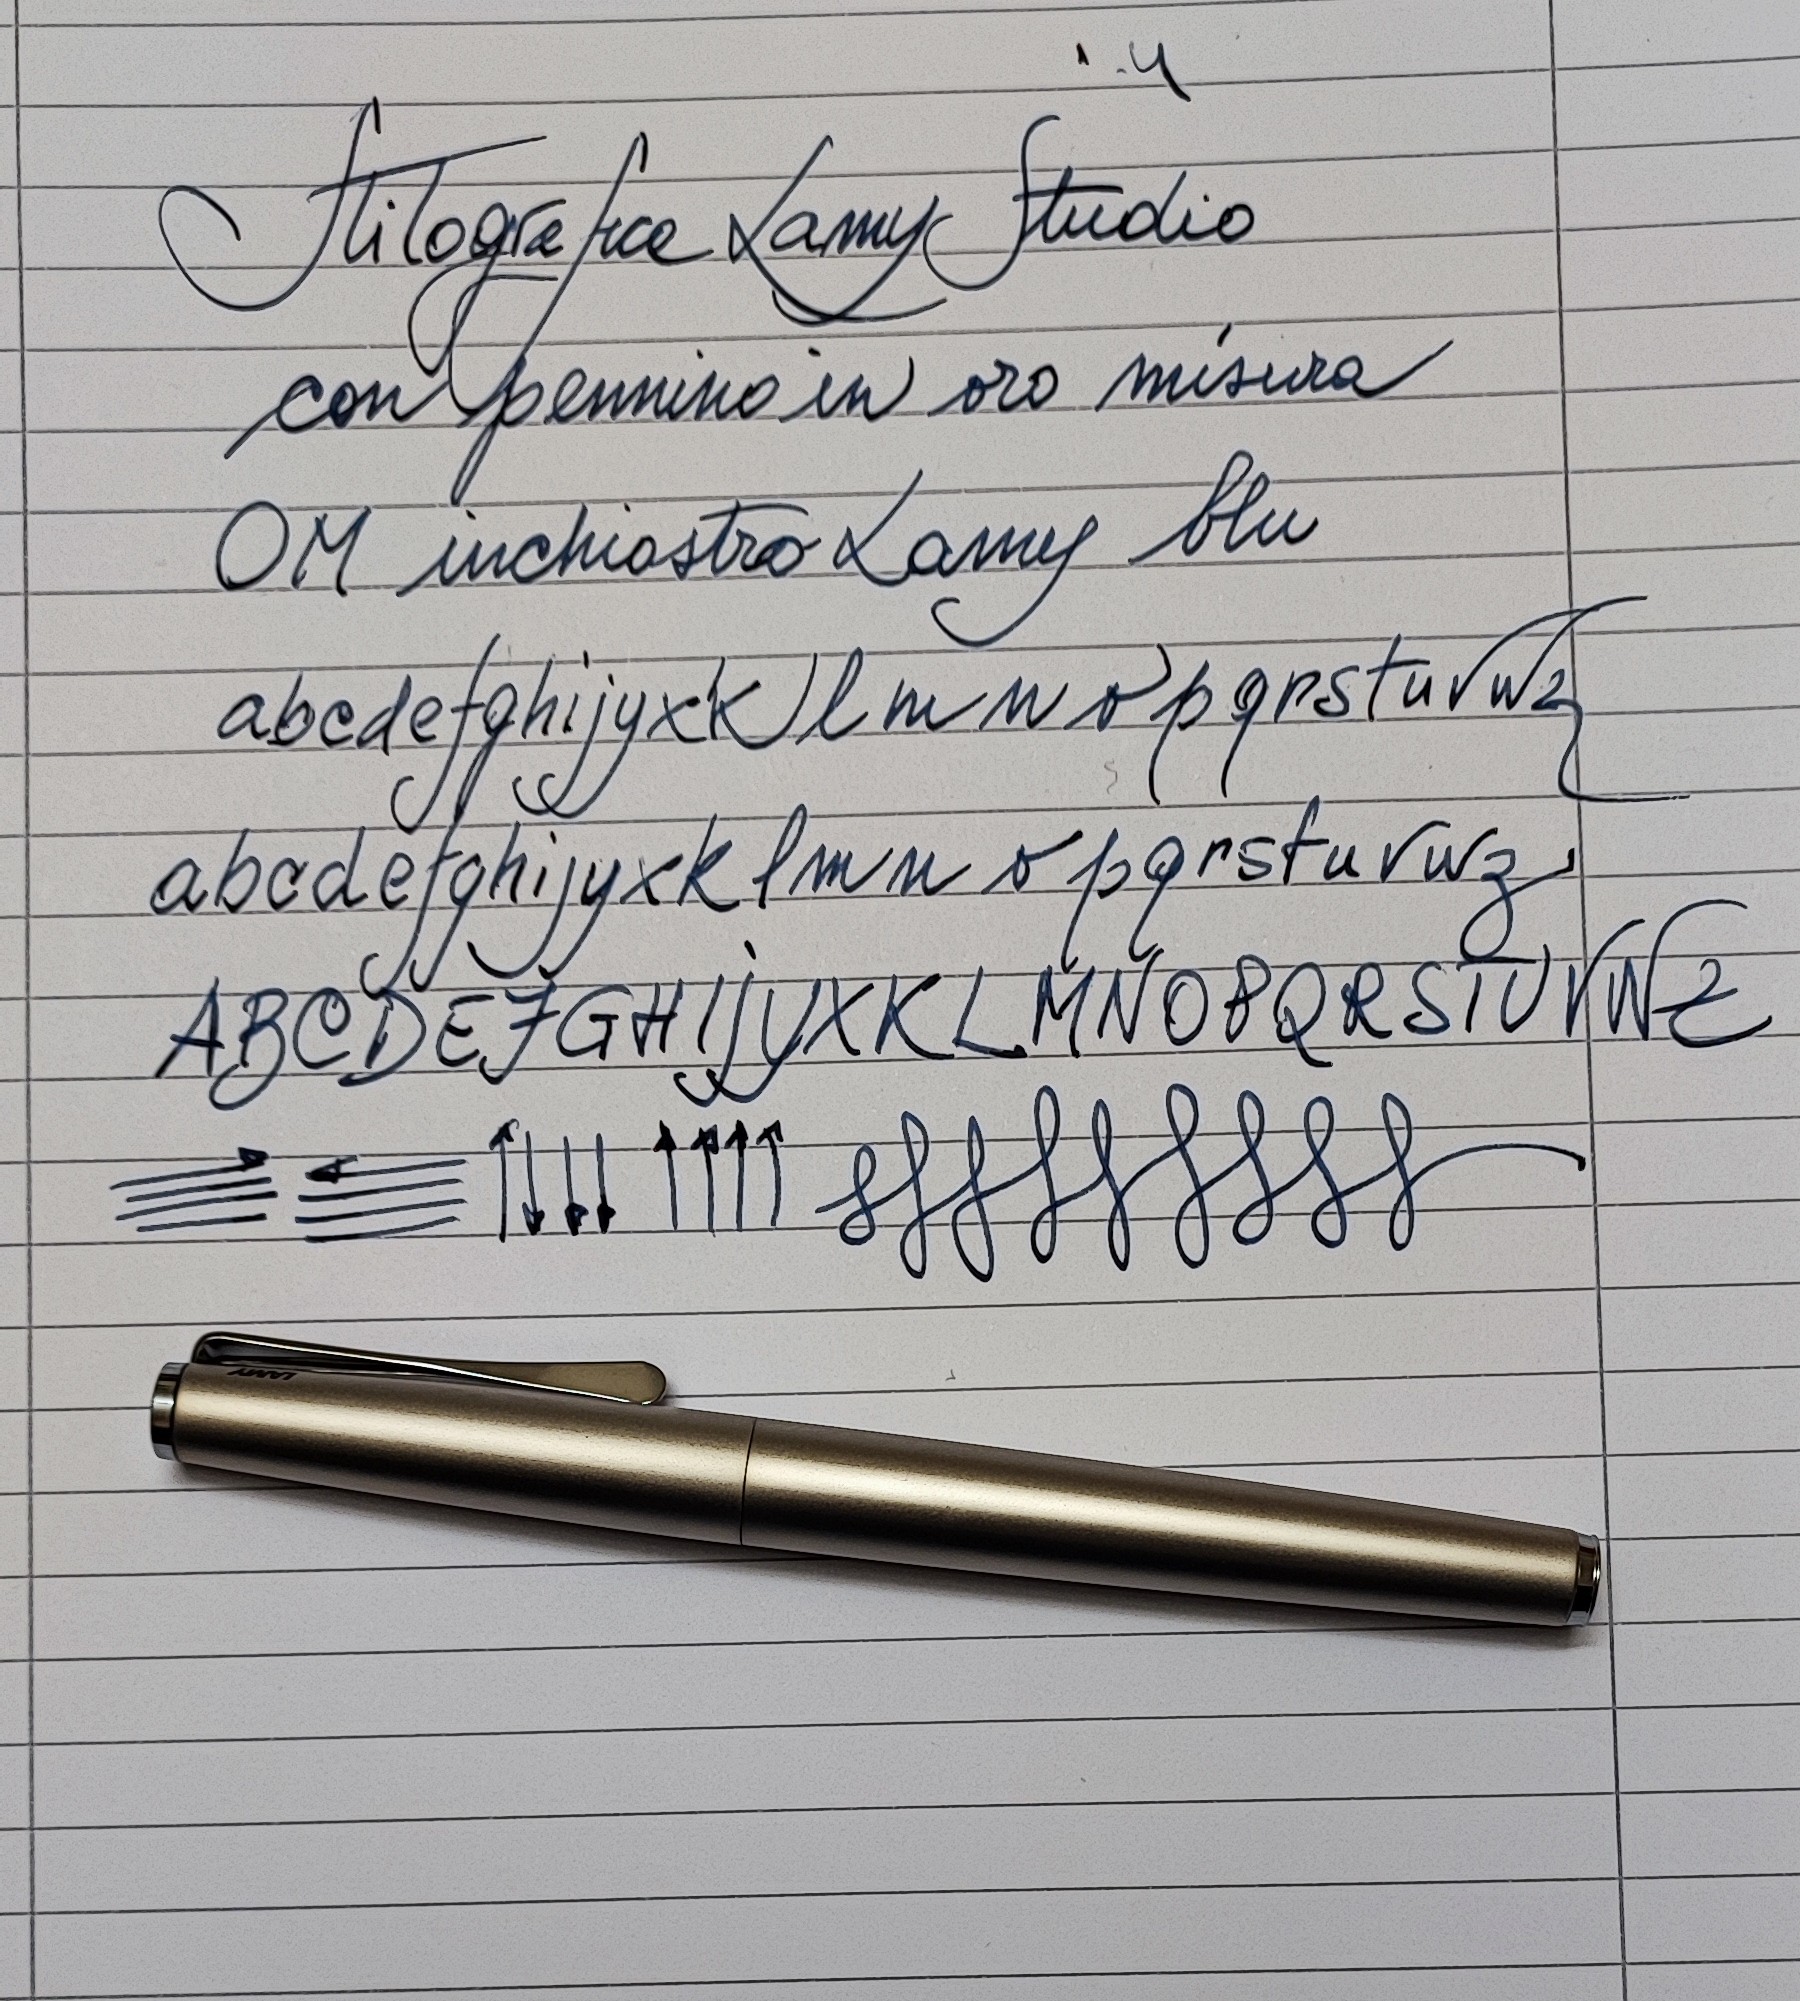 Stilografica Lamy Studio
con pennino in oro misura
OM inchiostro Lamy blu
abcdefghijyxklmnopqrstuvwz
abcdefghijyxklmnopqrstuvwz
ABCDEFGHIJYXKLMNOPQRSTUVWZ
LAMY